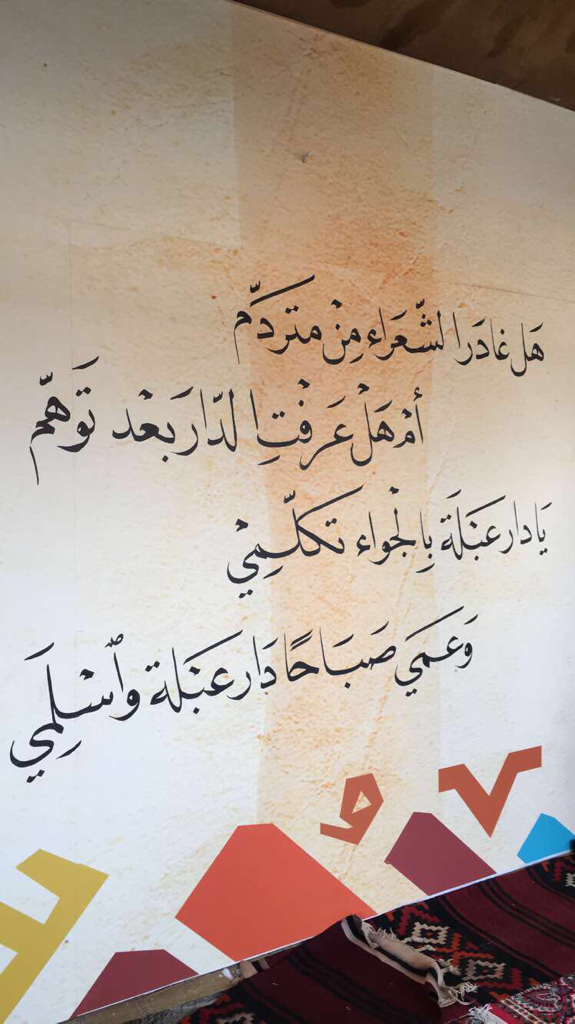 هَل غَادَرَ الشُّعَرَاء مِنْ مُتَرَدَّم
أمْ هَلْ عَرَفْتِ الدّارَ بَعْد تَوَهّم
يَا دار عَبْلَة بِالْجواء تَكَلّمِيْ
وَعمَي صَبَاحًا دَار عَبْلة وٱسْلِمَي